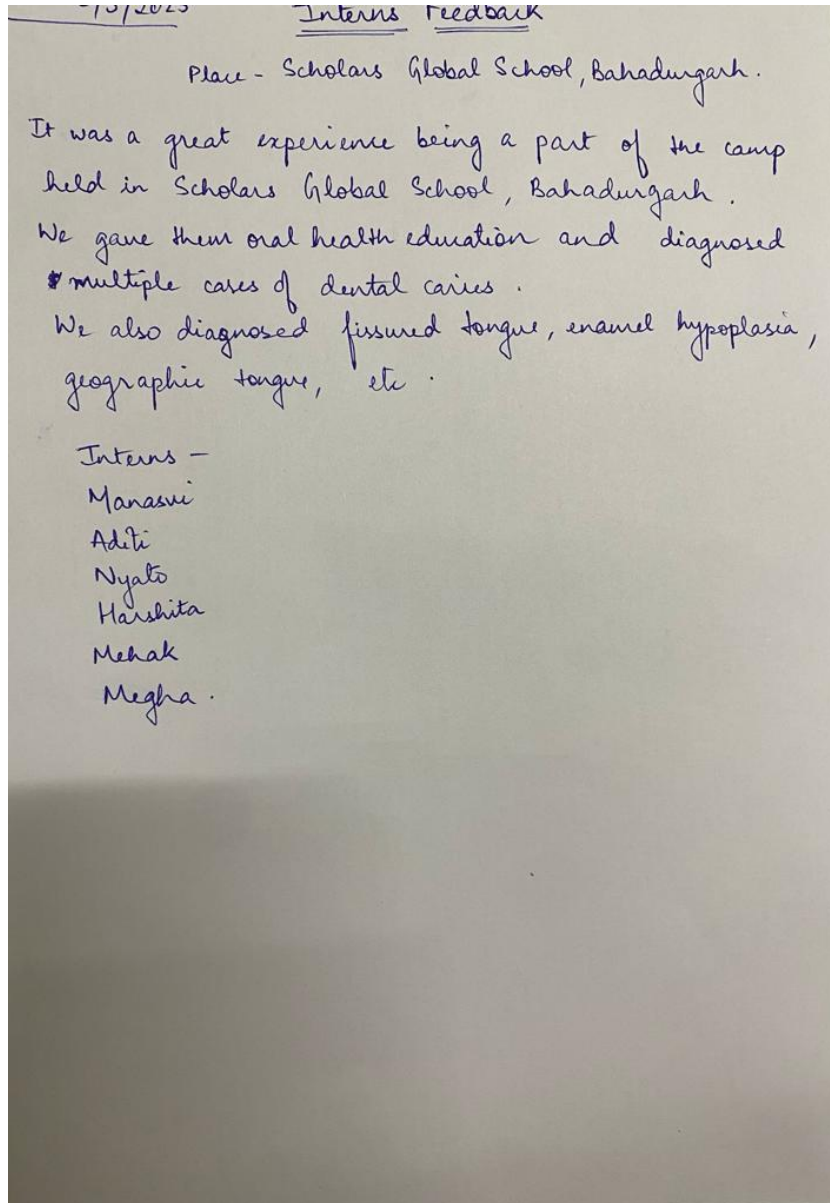 Interns Feedback
Place - Scholars Global School, Bahadurgarh.
It was a great experience being a part of the camp
held in Scholars Global School, Bahadurgarh.
We gave them oral health education and diagnosed
multiple cases of dental caries.
We also diagnosed fissured tongue, enamel hypoplasia,
geographic tongue, etc.
Interns -
Manasvi
Aditi
Nyato
Harshita
Mehak
Megha.